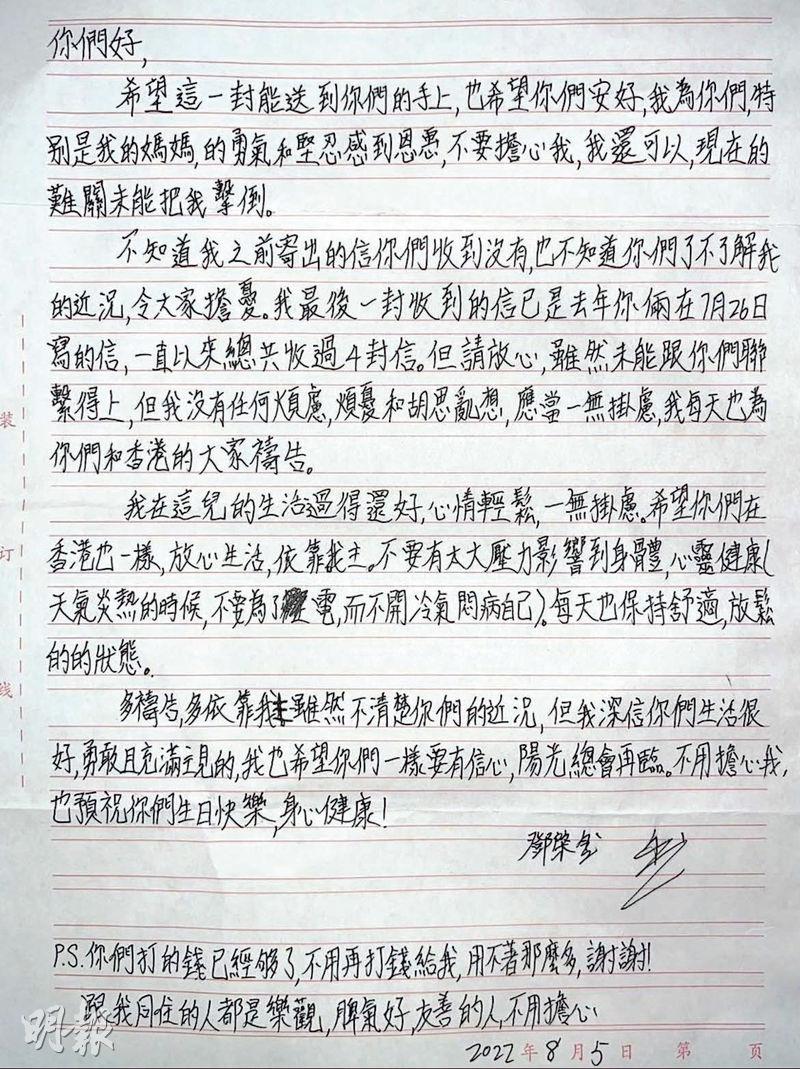 你們好,
希望這一封能送到你們的手上,也希望你們安好,我為你們,特
別是我的媽媽,的勇氣和堅忍感到恩惠,不要擔心我,我還可以,現在的
難關未能把我擊倒。
不知道我之前寄出的信你們收到沒有,也不知道你們了不了解我
的近況,令大家擔憂。我最後一封收到的信已是去年你倆在7月26日
寫的信,一直以來總共收過4封信。但請放心,雖然未能跟你們聯
繫得上,但我沒有任何煩慮,煩憂和胡思亂想,應當一無掛慮,我每天也為
你們和香港的大家禱告。
我在這兒的生活過得還好,心情輕鬆,一無掛慮。希望你們在
香港也一樣,放心生活,依靠我主。不要有太大壓力影響到身體,心靈健康(
天氣炎熱的時候,不要為了電,而不開冷氣悶病自己)。每天也保持舒適,放鬆
的的狀態。
多禱告,多依靠我主雖然不清楚你們的近況,但我深信你們生活很
好,勇敢且充滿主見的,我也希望你們一樣要有信心,陽光總會再臨。不用擔心我,
也預祝你們生日快樂,身心健康!
鄧棨
P.S.你們打的錢已經够了,不用再打錢給我,用不著那麼多,謝謝!
跟我同住的人都是樂觀,脾氣好,友善的人,不用擔心
2022年8月5日 第 頁
装
订
线
明報